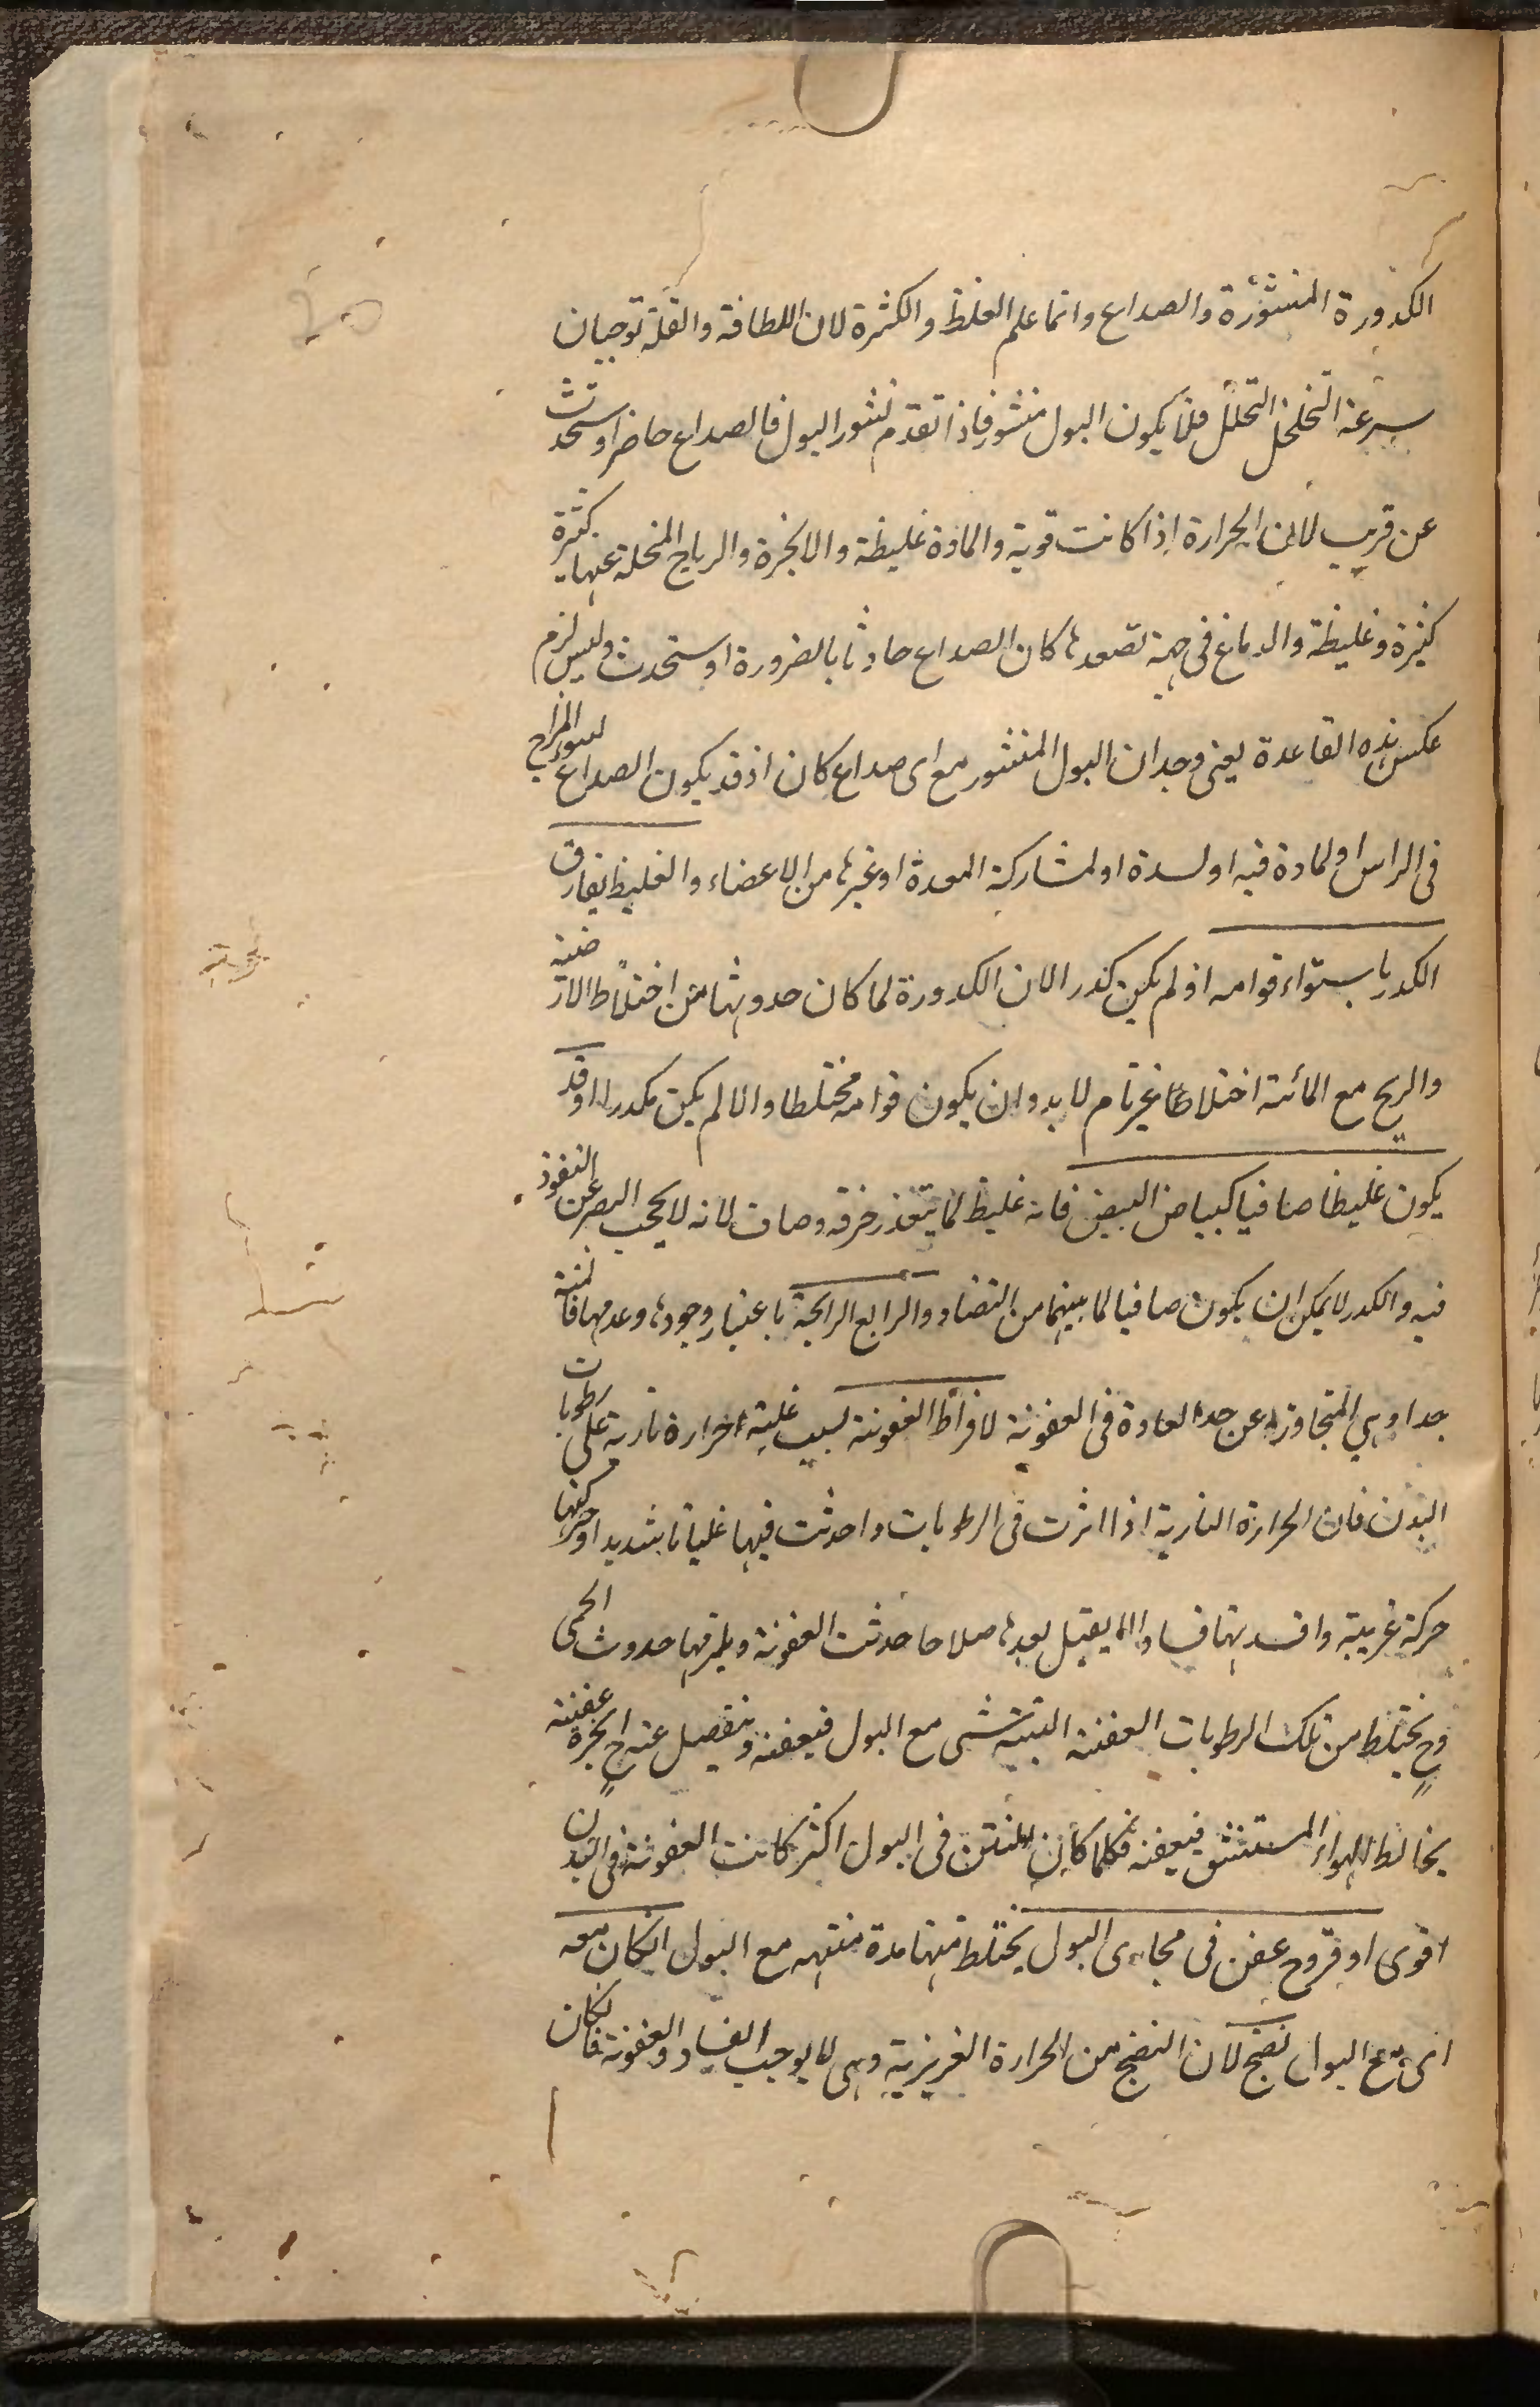 الكدورة المنشورة والصداع وانما علم الغلظ والكثرة لان اللطافة والقلة توجبان
سرعة التخلخل التحلل فلا يكون البول منشور فاذا تقدم نشور البول فالصداع حاضر او ستحدث
عن قريب لان الحرارة اذا كانت قوية والمادة غليظة والابخرة والرياح المنحلة عنها كثيرة
كثيرة وغليظة والدماغ فى جهة تصعدها كان الصداع حادثا بالضرورة او ستحدث وليس لزم
عكس هذه القاعدة يعنى وجدان البول المنشور مع اى صداع كان اذ قد يكون الصداع لسوء المزاج
فى الراس او لمادة فيه او لسدة او لمشاركة المعدة او غيرها من الاعضاء والغليظ يفارق
الكدر باستواء قوامه اذ لم يكن كدر الان الكدورة لما كان حدوثها من اختلاط الارضية
والريح مع المائية اختلاطا غير تام لابد وان يكون قوامه مختلطا والا لم يكن مكدرا اوقد
يكون غليظا صافيا كبياض البيض فانه غليظ لما يتعذر خرقه وصاف لانه لا يحجب البصر عن النفوذ
فيه والكدر لا يمكن ان يكون صافيا لما بينهما من التضاد والرابع الرايحة باعتبار وجودها وعدمها فالمنتنة
جدا وهي المتجاوزة عن حد العادة فى العفونة لافراط العفونة بسبب غلبة حرارة نارية على رطوبات
البدن فان الحرارة النارية اذا اثرت فى الرطوبات واحدثت فيها غليانا شديدا وحركتها
حركة غريبة وافسدتها فسادا لا يقبل بعدها صلاحا حدثت العفونة ويلزمها حدوث الحمى
وح يختلط من تلك الرطوبات العفنة النتنة شى مع البول فيعفنه وينفصل عنه ح ابخرة عفنة
يخالط الهواء المستنشق فيعفنه فكلما كان النتن فى البول اكثر كانت العفونة فى البدن
اقوى او قروح عفن فى مجارى البول يختلط منها مدة منتنه مع البول ان كان معه
اى مع البول نضج لان النضج من الحرارة الغريزية وهى لا يوجب الفساد والعفونة فان كان